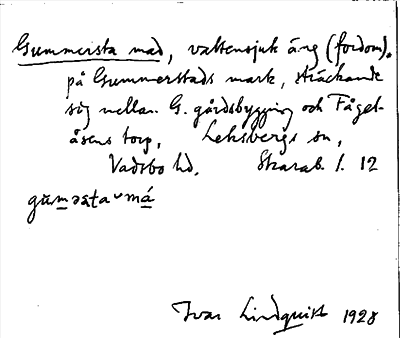 Gummersta mad, vattensjuk äng (fordom).
på Gummerstads mark, sträckande
sig mellan G. gårdsbyggning och Fågel-
åsens torp, Leksbergs sn,
Vadsbo hd, Skarab. l. 12
Ivar Lindquist 1928